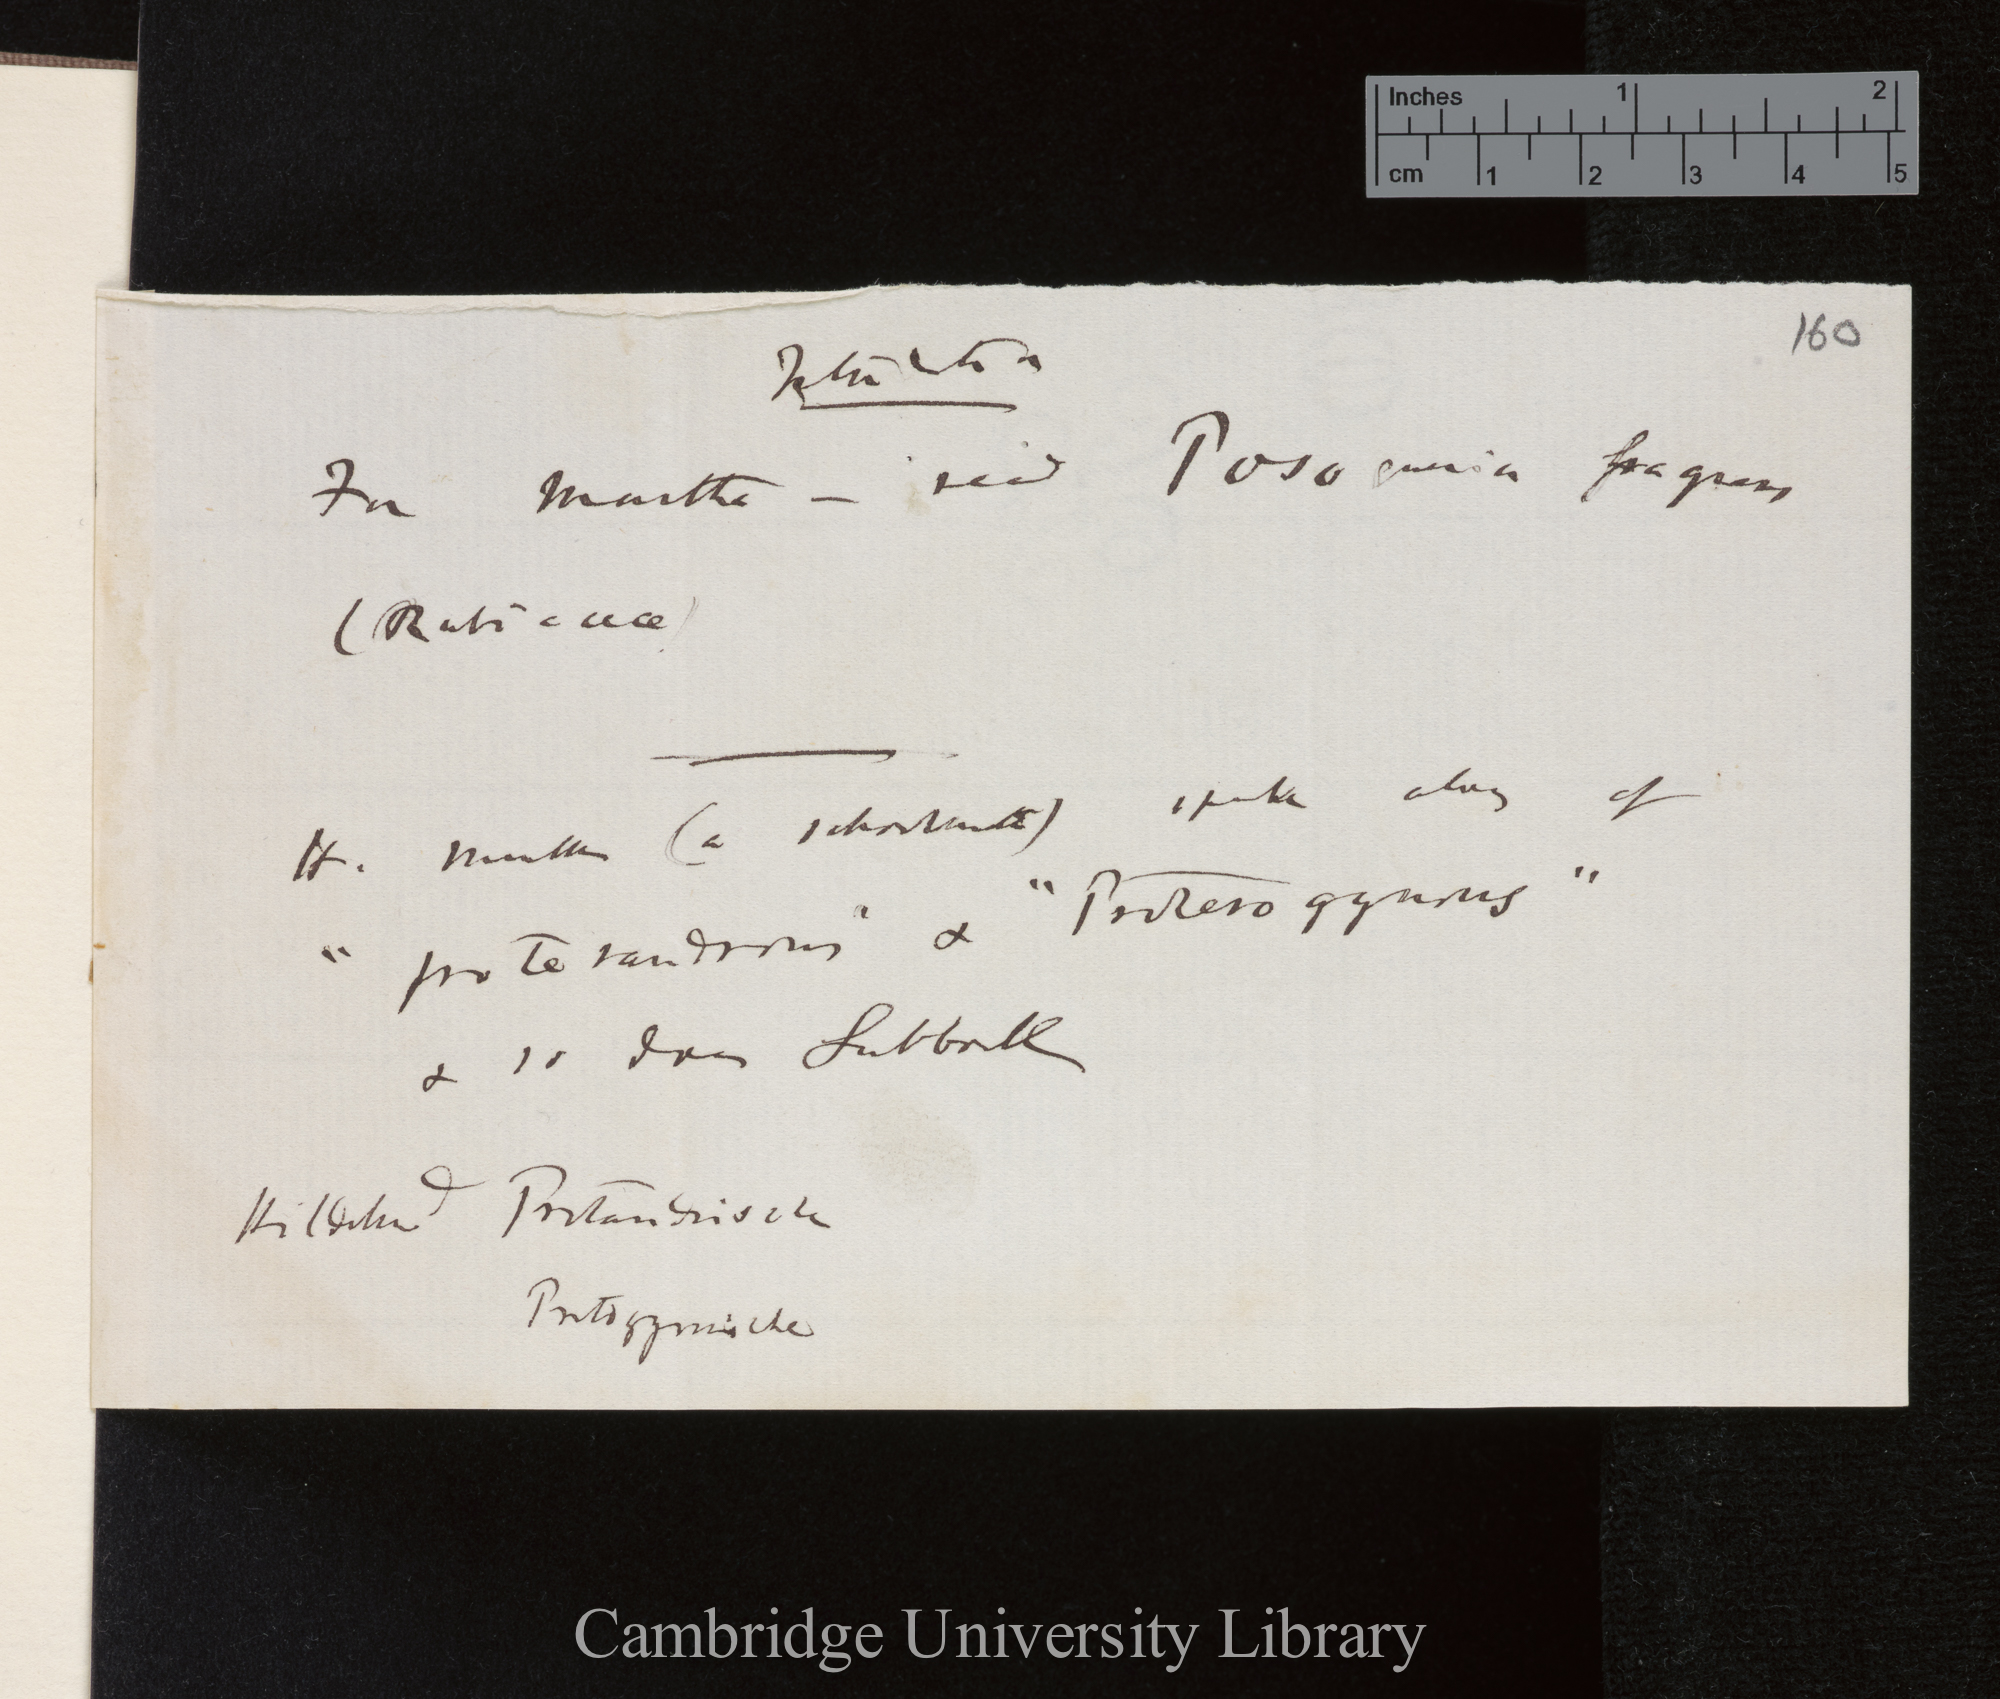 Inches 1 2
cm 1 2 3 4 5
160
Introduction
For Martha – read Posoqueria fragrans
(Rubiaceæ)
H. Muller (a schoolmaster) speaks always of
" proterandrous" & "Proterogynous"
& so does Lubbock
Hildebrand Protandrische
Protogynische
Cambridge University Library